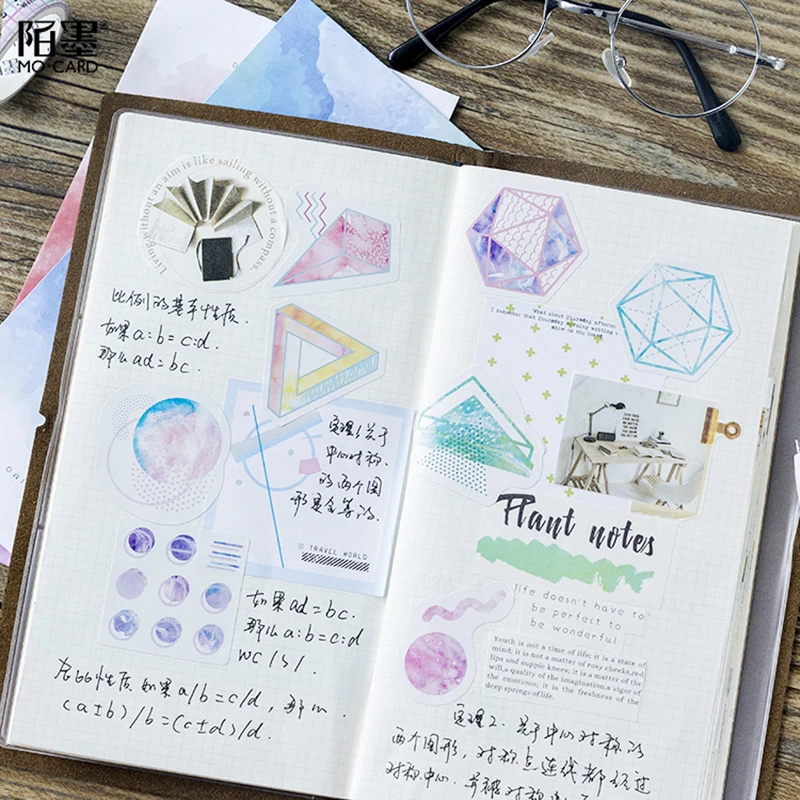 陌墨
MO·CARD
Living without an aim is like sailing without a compass.
比例的基本性质.
如果a:b=c:d.
那么ad=bc.
定理1关于
中心对称.
的两个图
形是全等的.
© TRAVEL WORLD
如果ad=bc.
那么a:b=c:d
合比性质 如果a/b=c/d, 那么.
(a±b)/b=(c±d)/d.
What about Thursday
I remember that Thursday morning writing
show on the board
Plant notes
life doesn't have to
be perfect to
be wonderful
Youth is not a time of life; it is a state of
mind; it is not a matter of rosy cheeks, red
lips and supple knees; it is a matter of the
will, a quality of the imagination, a vigor of
the emotions; it is the freshness of the
deep springs of life.
定理2. 关于中心对称的
两个图形, 对称点连线都经过
对称中心. 并被对称